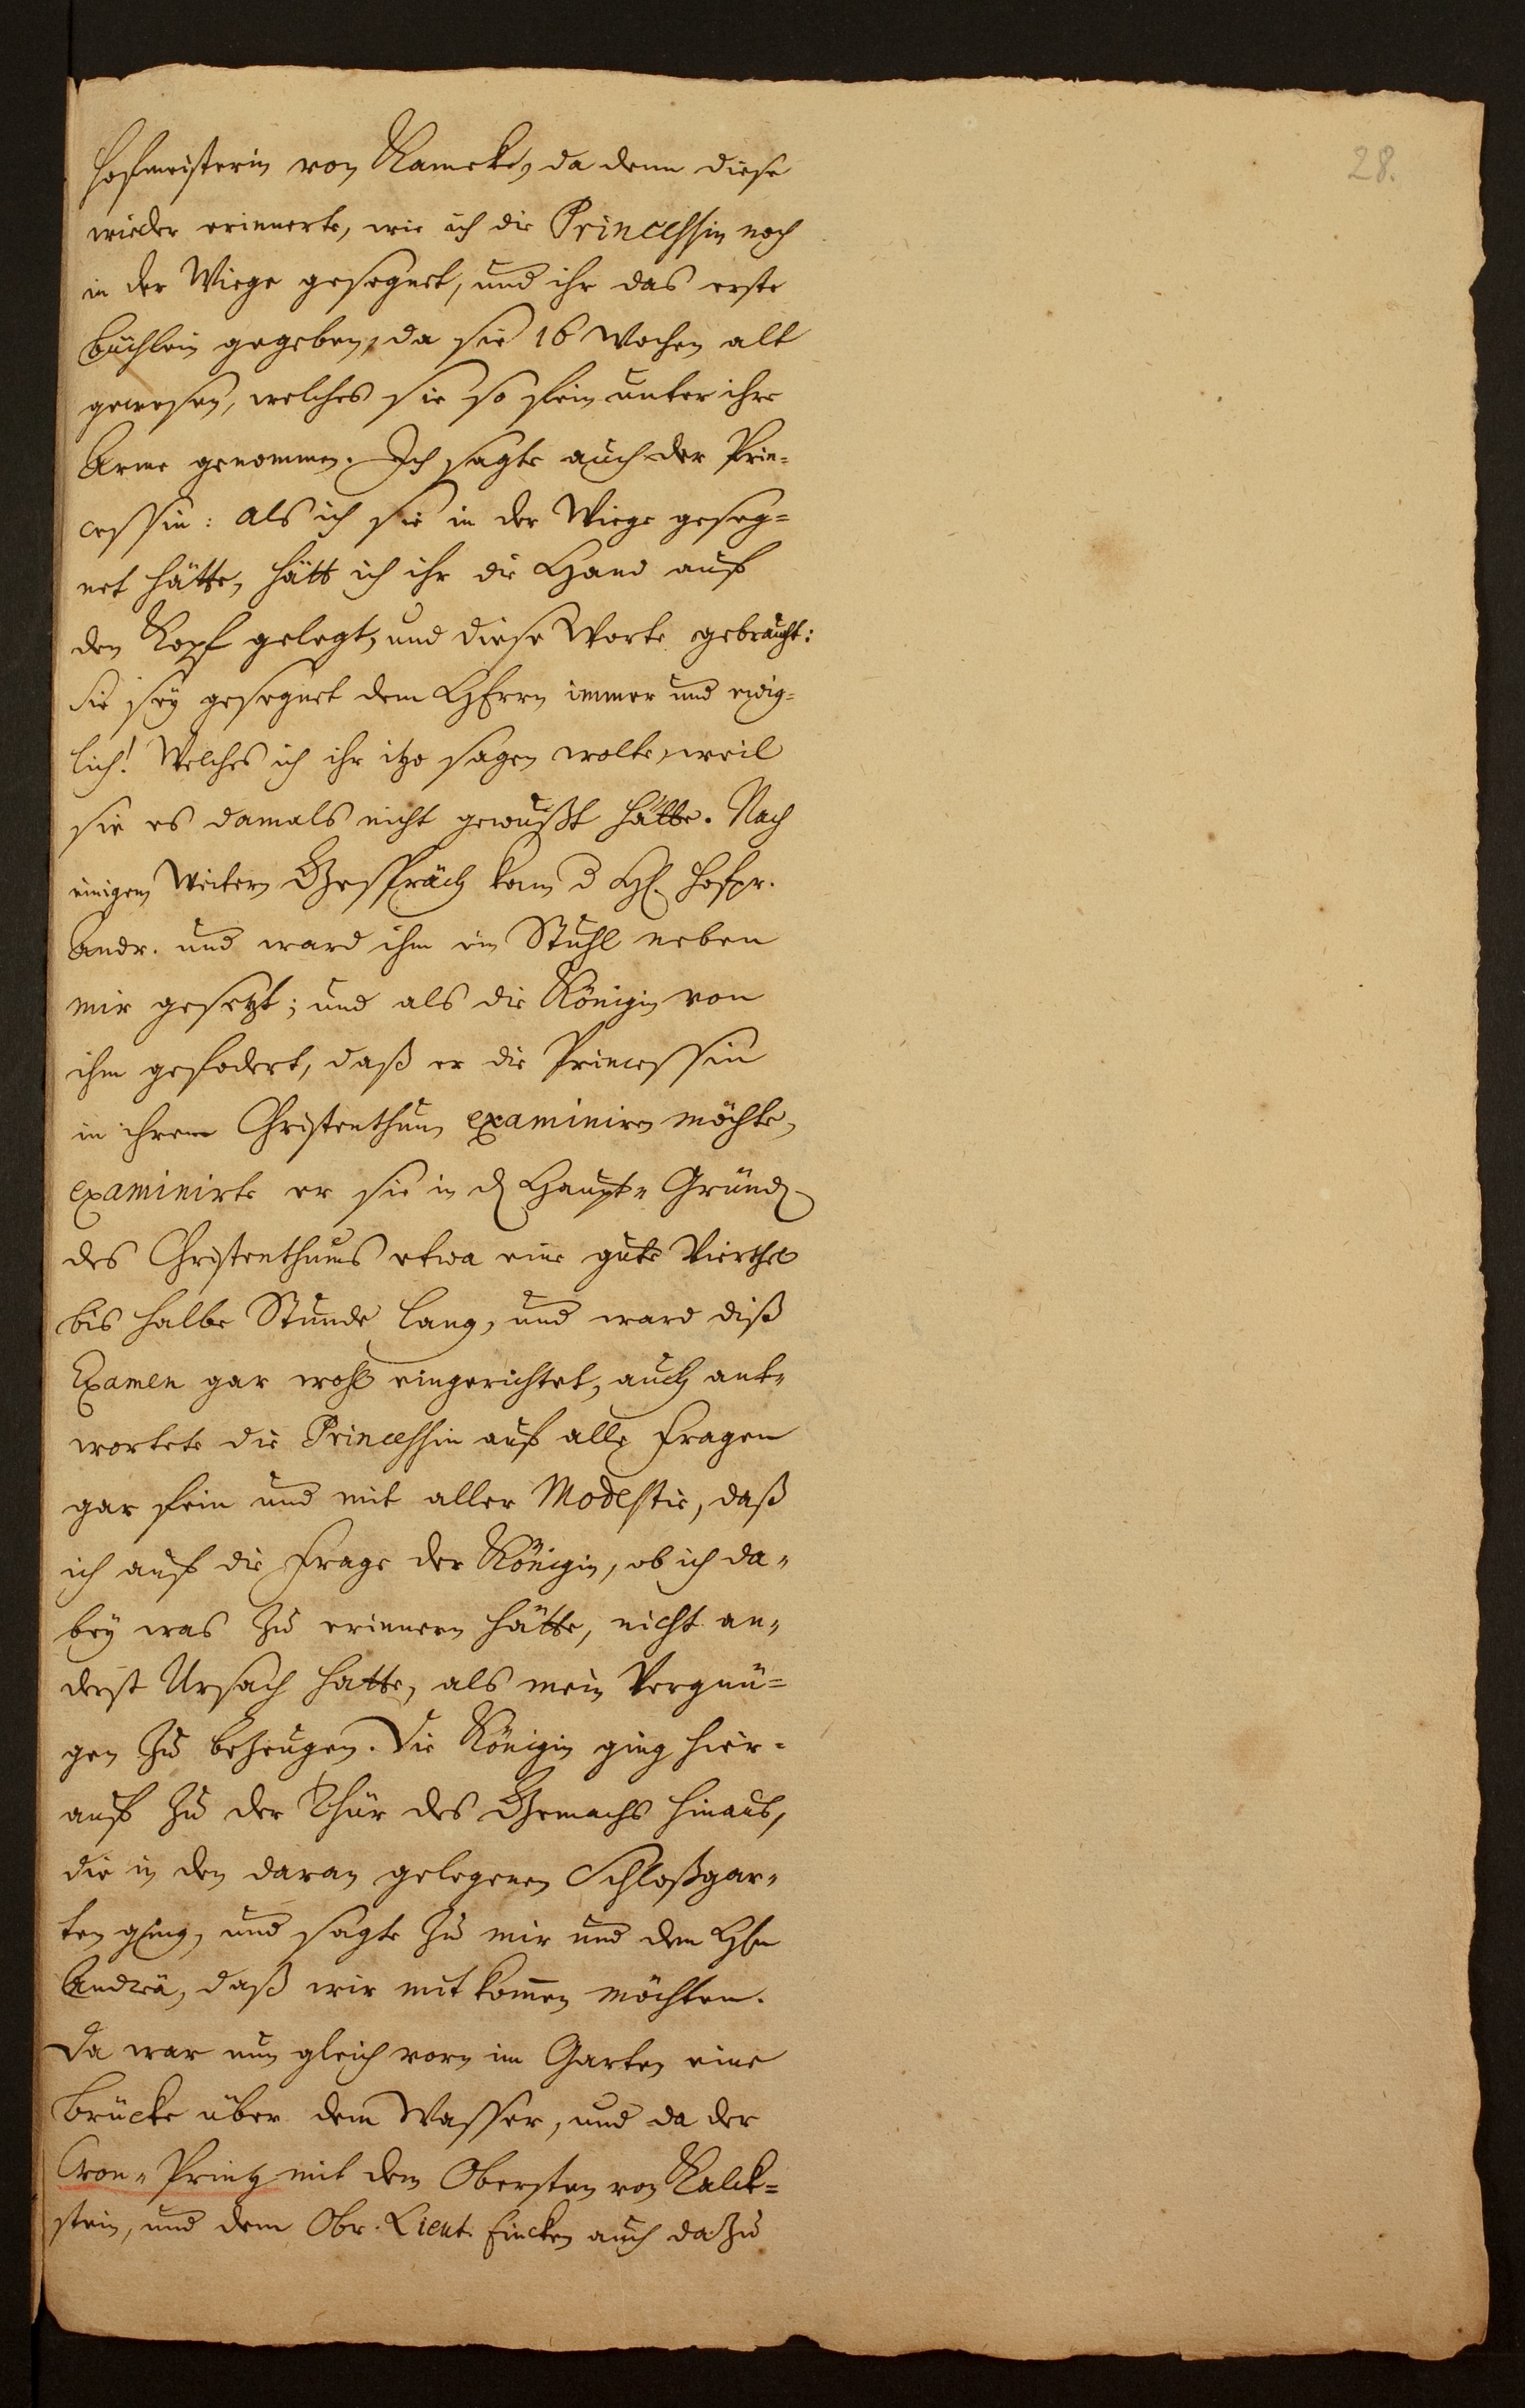 28.
Hofmeisterin von Kameke, da denn diese
wieder erinnerte, wie ich die Princeßin noch
in der Wiege gesegnet, und ihr das erste
büchlein gegeben, da sie 16 Wochen alt
gewesen, welches sie so fein unter ihre
Arme genommen. Ich sagte auch der Prin=
ceßin: als ich sie in der Wiege geseg=
net hätte, hätt ich ihr die Hand auf
den Kopf gelegt, und diese Worte gebraucht:
Sie sey gesegnet dem HErrn immer und ewig=
lich! Welches ich ihr itzo sagen wolte, weil
sie es damals nicht gewußt hätte. Nach
einigem weitern Gespräch kam d H. Hofpr.
Andr. und ward ihm ein Stuhl neben
mir gesetzt; und als die Königin von
ihm gefodert, daß er die Princeßin
in ihrem Christenthum examiniren möchte,
examinirte er sie in d Haupt= Gründ
des Christenthums etwa eine gute Vierthel
bis halbe Stunde lang, und ward diß
Examen gar wohl eingerichtet, auch ant=
wortete die Princeßin auf alle Fragen
gar fein und mit aller Modestie, daß
ich auf die Frage der Königin, ob ich da=
bey was zu erinnern hätte, nicht an=
derst Ursach hatte, als mein Vergnü=
gen zu bezeugen. Die Königin ging hier=
auf zu der Thür des Gemachs hinaus,
die in den daran gelegenen Schloßgar=
ten ging, und sagte zu mir und dem Hn
Andreä, daß wir mit kom̄en möchten.
Da war nun gleich vorn im Garten eine
Brücke über dem Wasser, und da der
Cron= Printz mit dem Obersten von Kalck=
stein, und dem Obr. Lieut. Fincken auch dazu